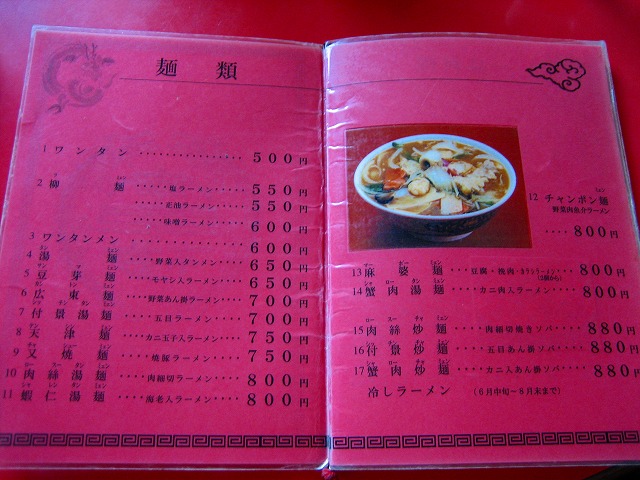 麺 類
1 ワンタン 500円
2 柳麺 塩ラーメン 550円
正油ラーメン 550円
味噌ラーメン 600円
3 ワンタンメン 600円
4 湯麺 野菜入タンメン 650円
5 豆芽麺 モヤシ入ラーメン 650円
6 広東麺 野菜あん掛ラーメン 700円
7 付景湯麺 五目ラーメン 700円
8 天津麺 カニ玉子入ラーメン 750円
9 叉焼麺 焼豚ラーメン 750円
10 肉絲湯麺 肉細切ラーメン 800円
11 蝦仁湯麺 海老入ラーメン 800円
12 チャンポン麺
野菜肉魚介ラーメン
800円
13 麻婆麺 豆腐・挽肉・カラシラーメン
14 蟹肉湯麺 カニ肉入ラーメン 800円
15 肉絲炒麺 肉細切焼きソバ 880円
16 付景炒麺 五目あん掛ソバ 880円
17 蟹肉炒麺 カニ入あん掛ソバ 880円
冷しラーメン (6月中旬〜8月末まで)